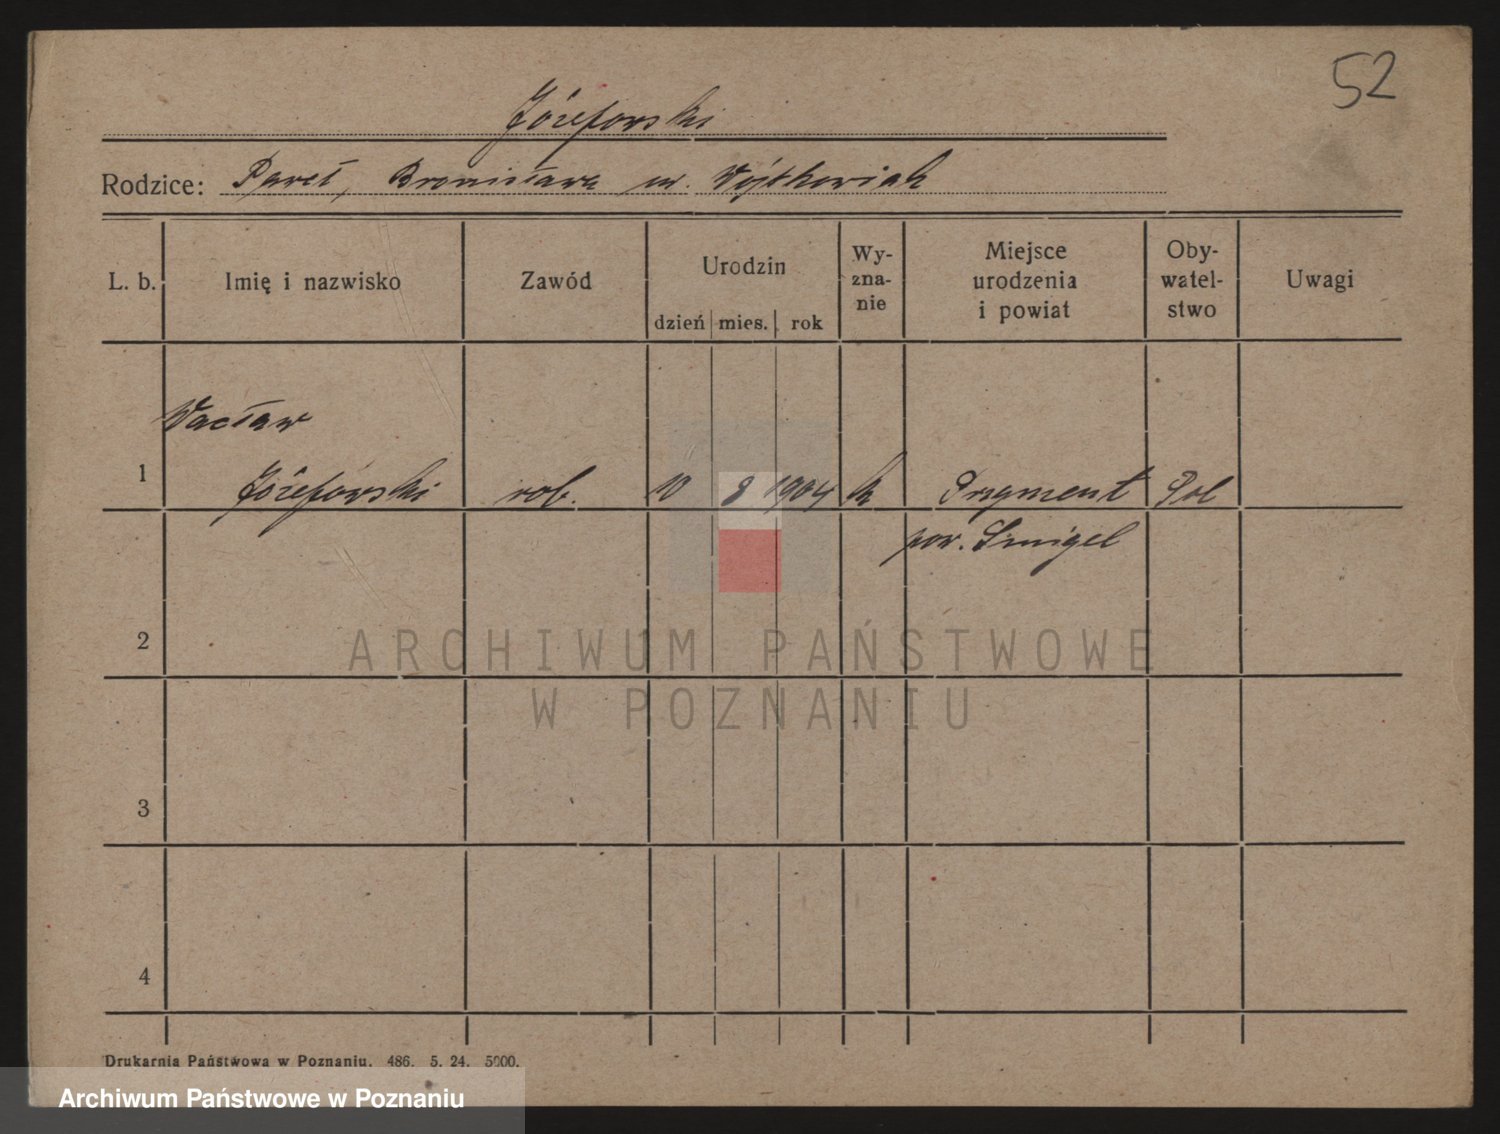 52
Józeforski
Rodzice: Paweł, Bronisława ur. Wojtkowiak
L. b.
Imię i nazwisko
Zawód
Urodzin
dzień mies. rok
Wy-
zna-
nie
Miejsce
urodzenia
i powiat
Oby-
watel-
stwo
Uwagi
Wacław
1 Józeforski rob. 10 8 1904 k Przyment Pol
pow. Śmigel
2
ARCHIWUM PAŃSTWOWE
W POZNANIU
3
4
Drukarnia Państwowa w Poznaniu. 486. 5. 24. 5000.
Archiwum Państwowe w Poznaniu